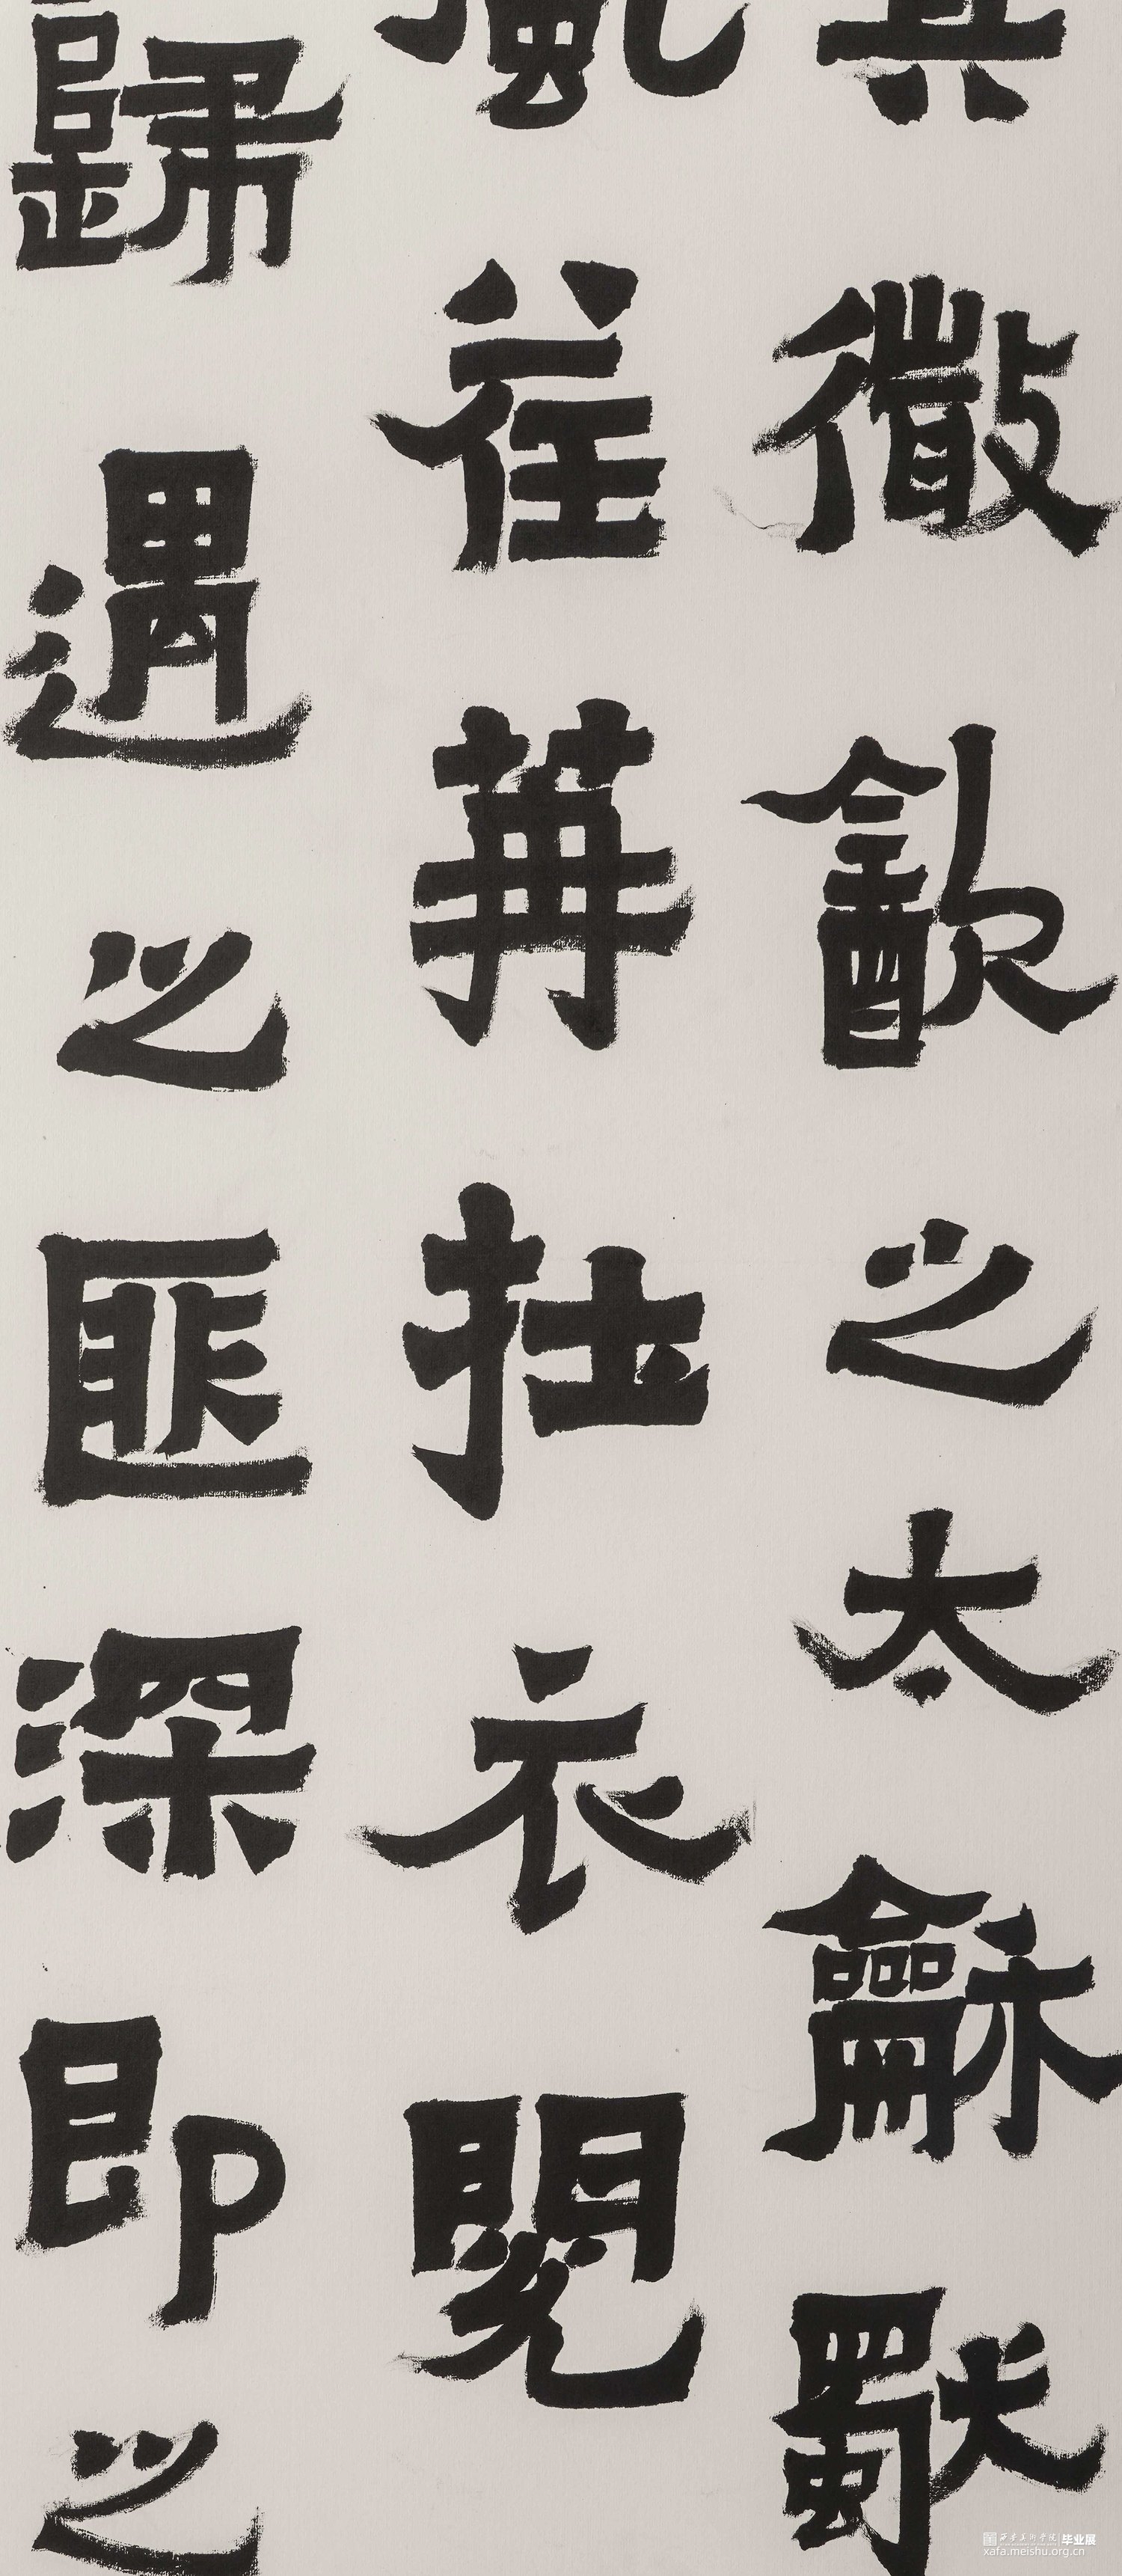 其微㱃之太龢獨
風荏苒扗衣閱
歸遇之匪深即之
西安美术学院 毕业展
xafa.meishu.org.cn